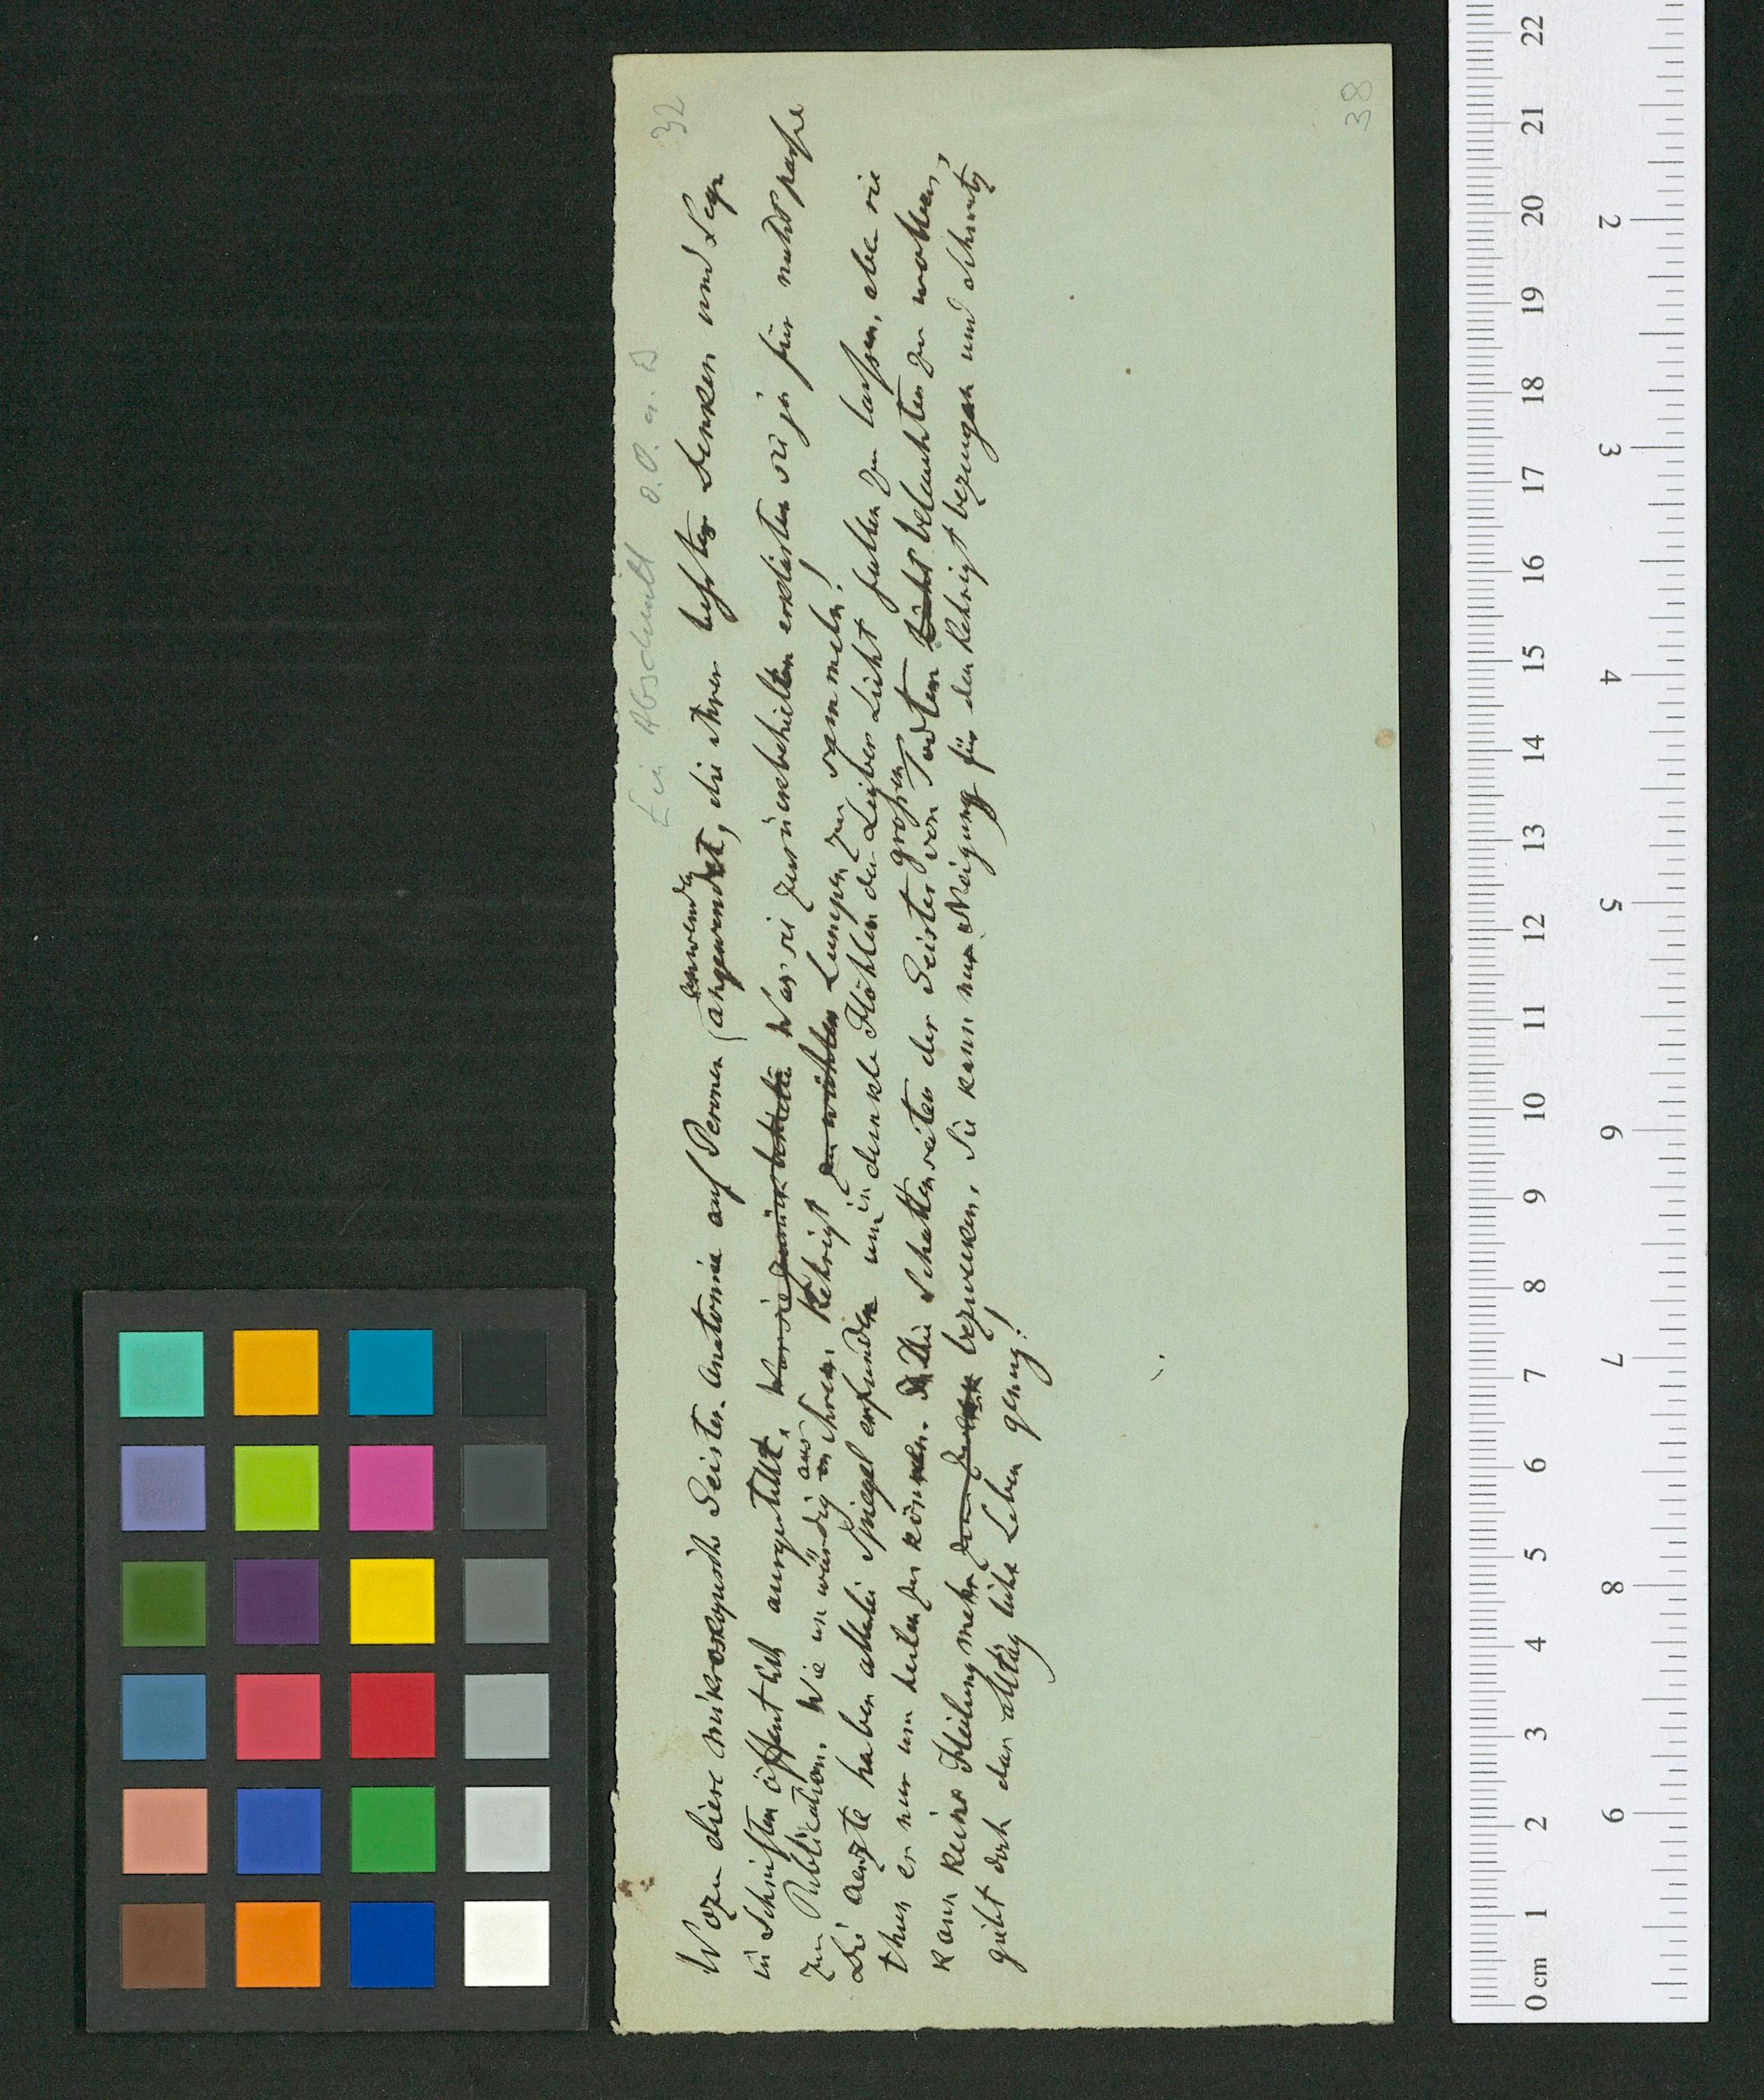 Ein Abschnitt o. O. u. D
32
Wozu diese mikroskopische Geister-Anatomie auf Personen angewendet, die ihrer bestes Denken und
anwenden
in Schriften öffentlich ausgestellt. Was sie zurückbehielten Was sie zurückbehielten erklärten sie ja für nicht passe
zur Publication. Wie unwürdig in ihrem Kehrigt zu wühlen Lumpen zu sammeln!
aus
Die Aerzte haben allerlei Spiegel erfunden um in dunkle Höhlen der Leiber Licht fallen zu lassen, aber sie
thun es nur um heilen zu können. Die Schattenseiten der Geister von großen Todten Licht beleuchten zu wollen,
kann keine Heilung mehr bezwecken. Sie kann nur Neigung für den Kehrigt bezeugen und
giebt doch das alltägliche Leben genug!
38
22
21
20
19
18
17
16
15
14
13
12
11
10
9
8
7
6
5
4
3
2
1
0 cm
2
3
4
5
6
7
8
9